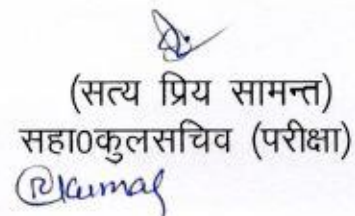 (सत्य प्रिय सामन्त)
सहा0कुलसचिव (परीक्षा)
RKumar